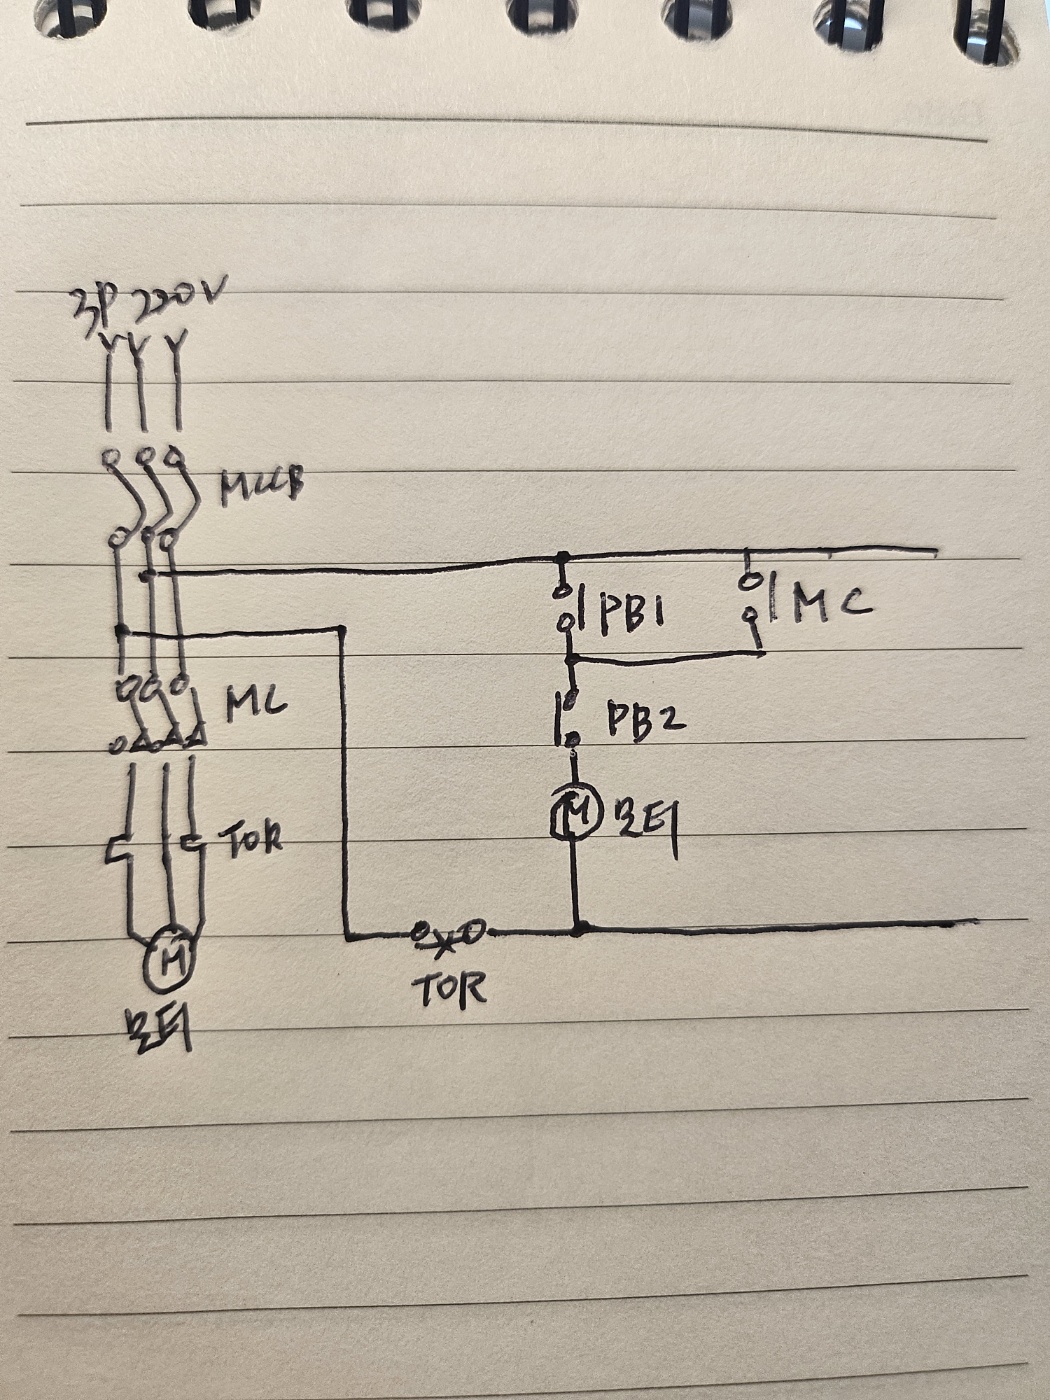 3P 220V
MCCB
PB1
MC
MC
PB2
M 모터
TOR
M
TOR
모터